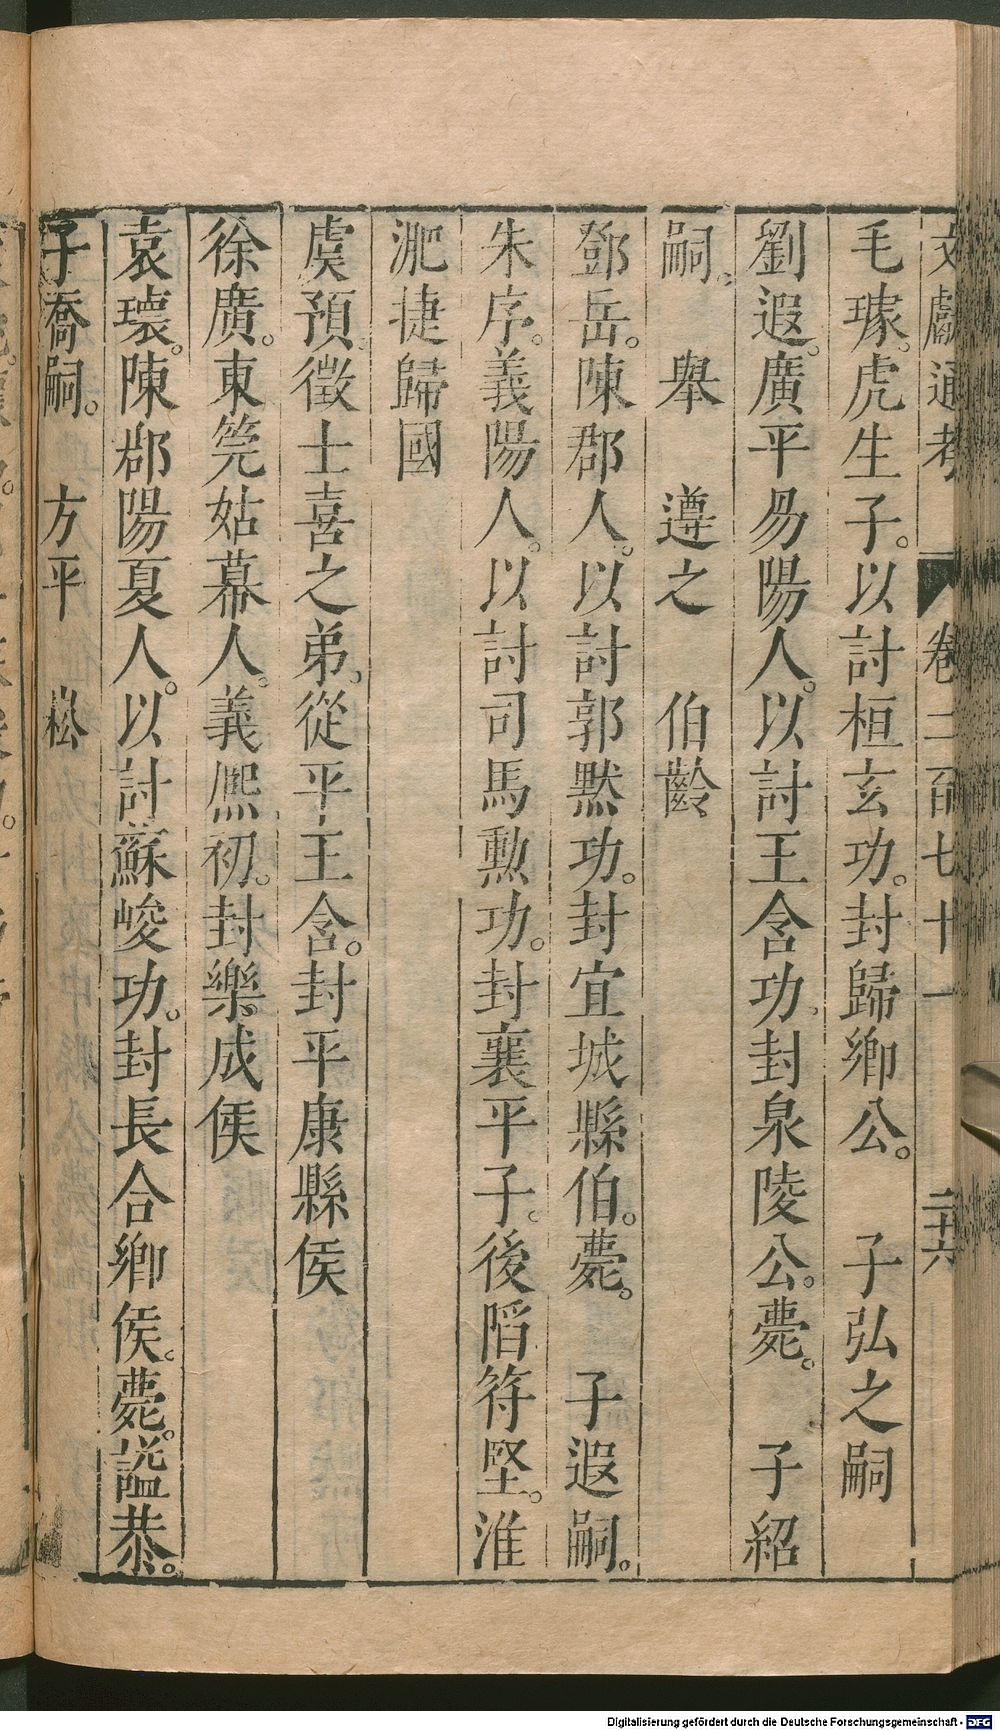 文獻通考 卷二百七十一 二十六
毛璩。虎生子。以討桓玄功。封歸鄉公。 子弘之嗣
劉遐。廣平易陽人。以討王含功、封泉陵公。薨。 子紹
嗣、 舉 遵之 伯齡
鄧岳。陳郡人。以討郭黙功。封宜城縣伯。薨。 子遐嗣。
朱序。義陽人。以討司馬勲功。封襄平子。後䧟符堅。淮
淝捷歸國
虞預、徵士喜之弟、從平王含。封平康縣侯
徐廣。東筦姑幕人。義熈初。封樂成侯
袁瓌。陳郡陽夏人。以討蘇峻功。封長合鄉侯。薨。謚恭。
子喬嗣。 方平 崧
Digitalisierung gefördert durch die Deutsche Forschungsgemeinschaft - DFG